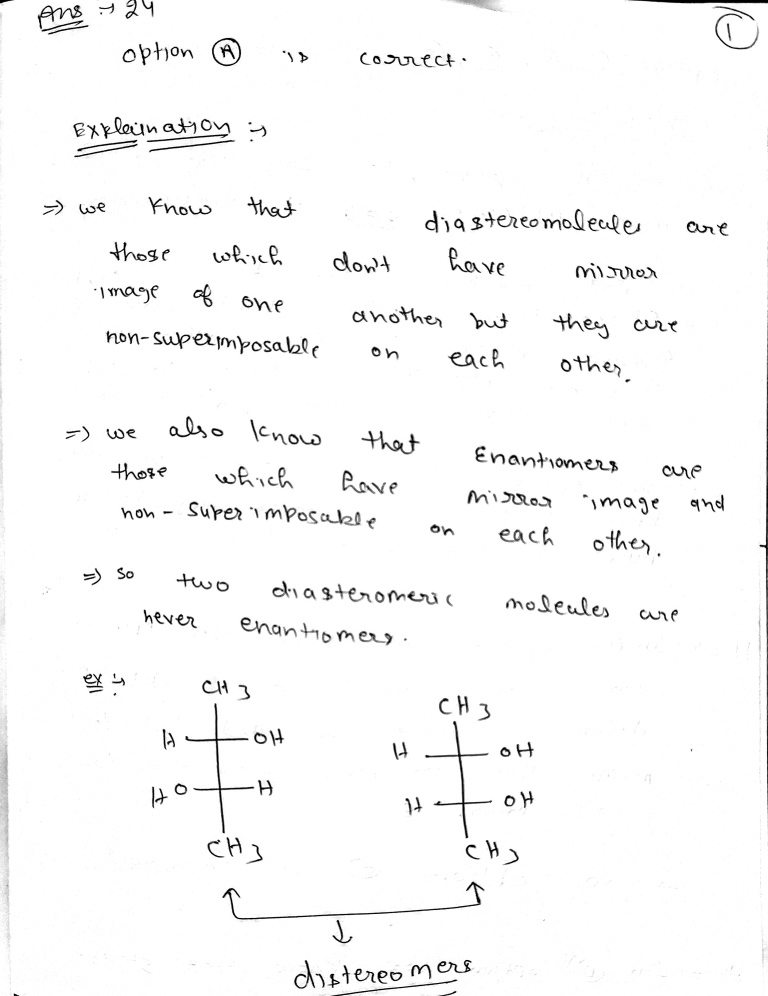 Ans :→ 24
1
option A is correct.
Explaination :→
⇒ we know that diastereomolecules are
those which don't have mirror
image of one another but they are
non-superimposable on each other.
⇒ we also know that Enantiomers are
those which have mirror image and
non-superimposable on each other.
⇒ so two diasteromeric moleules are
never enantiomers.
ex :→
CH3 CH3
H OH H OH
HO H H OH
CH3 CH3
distereomers